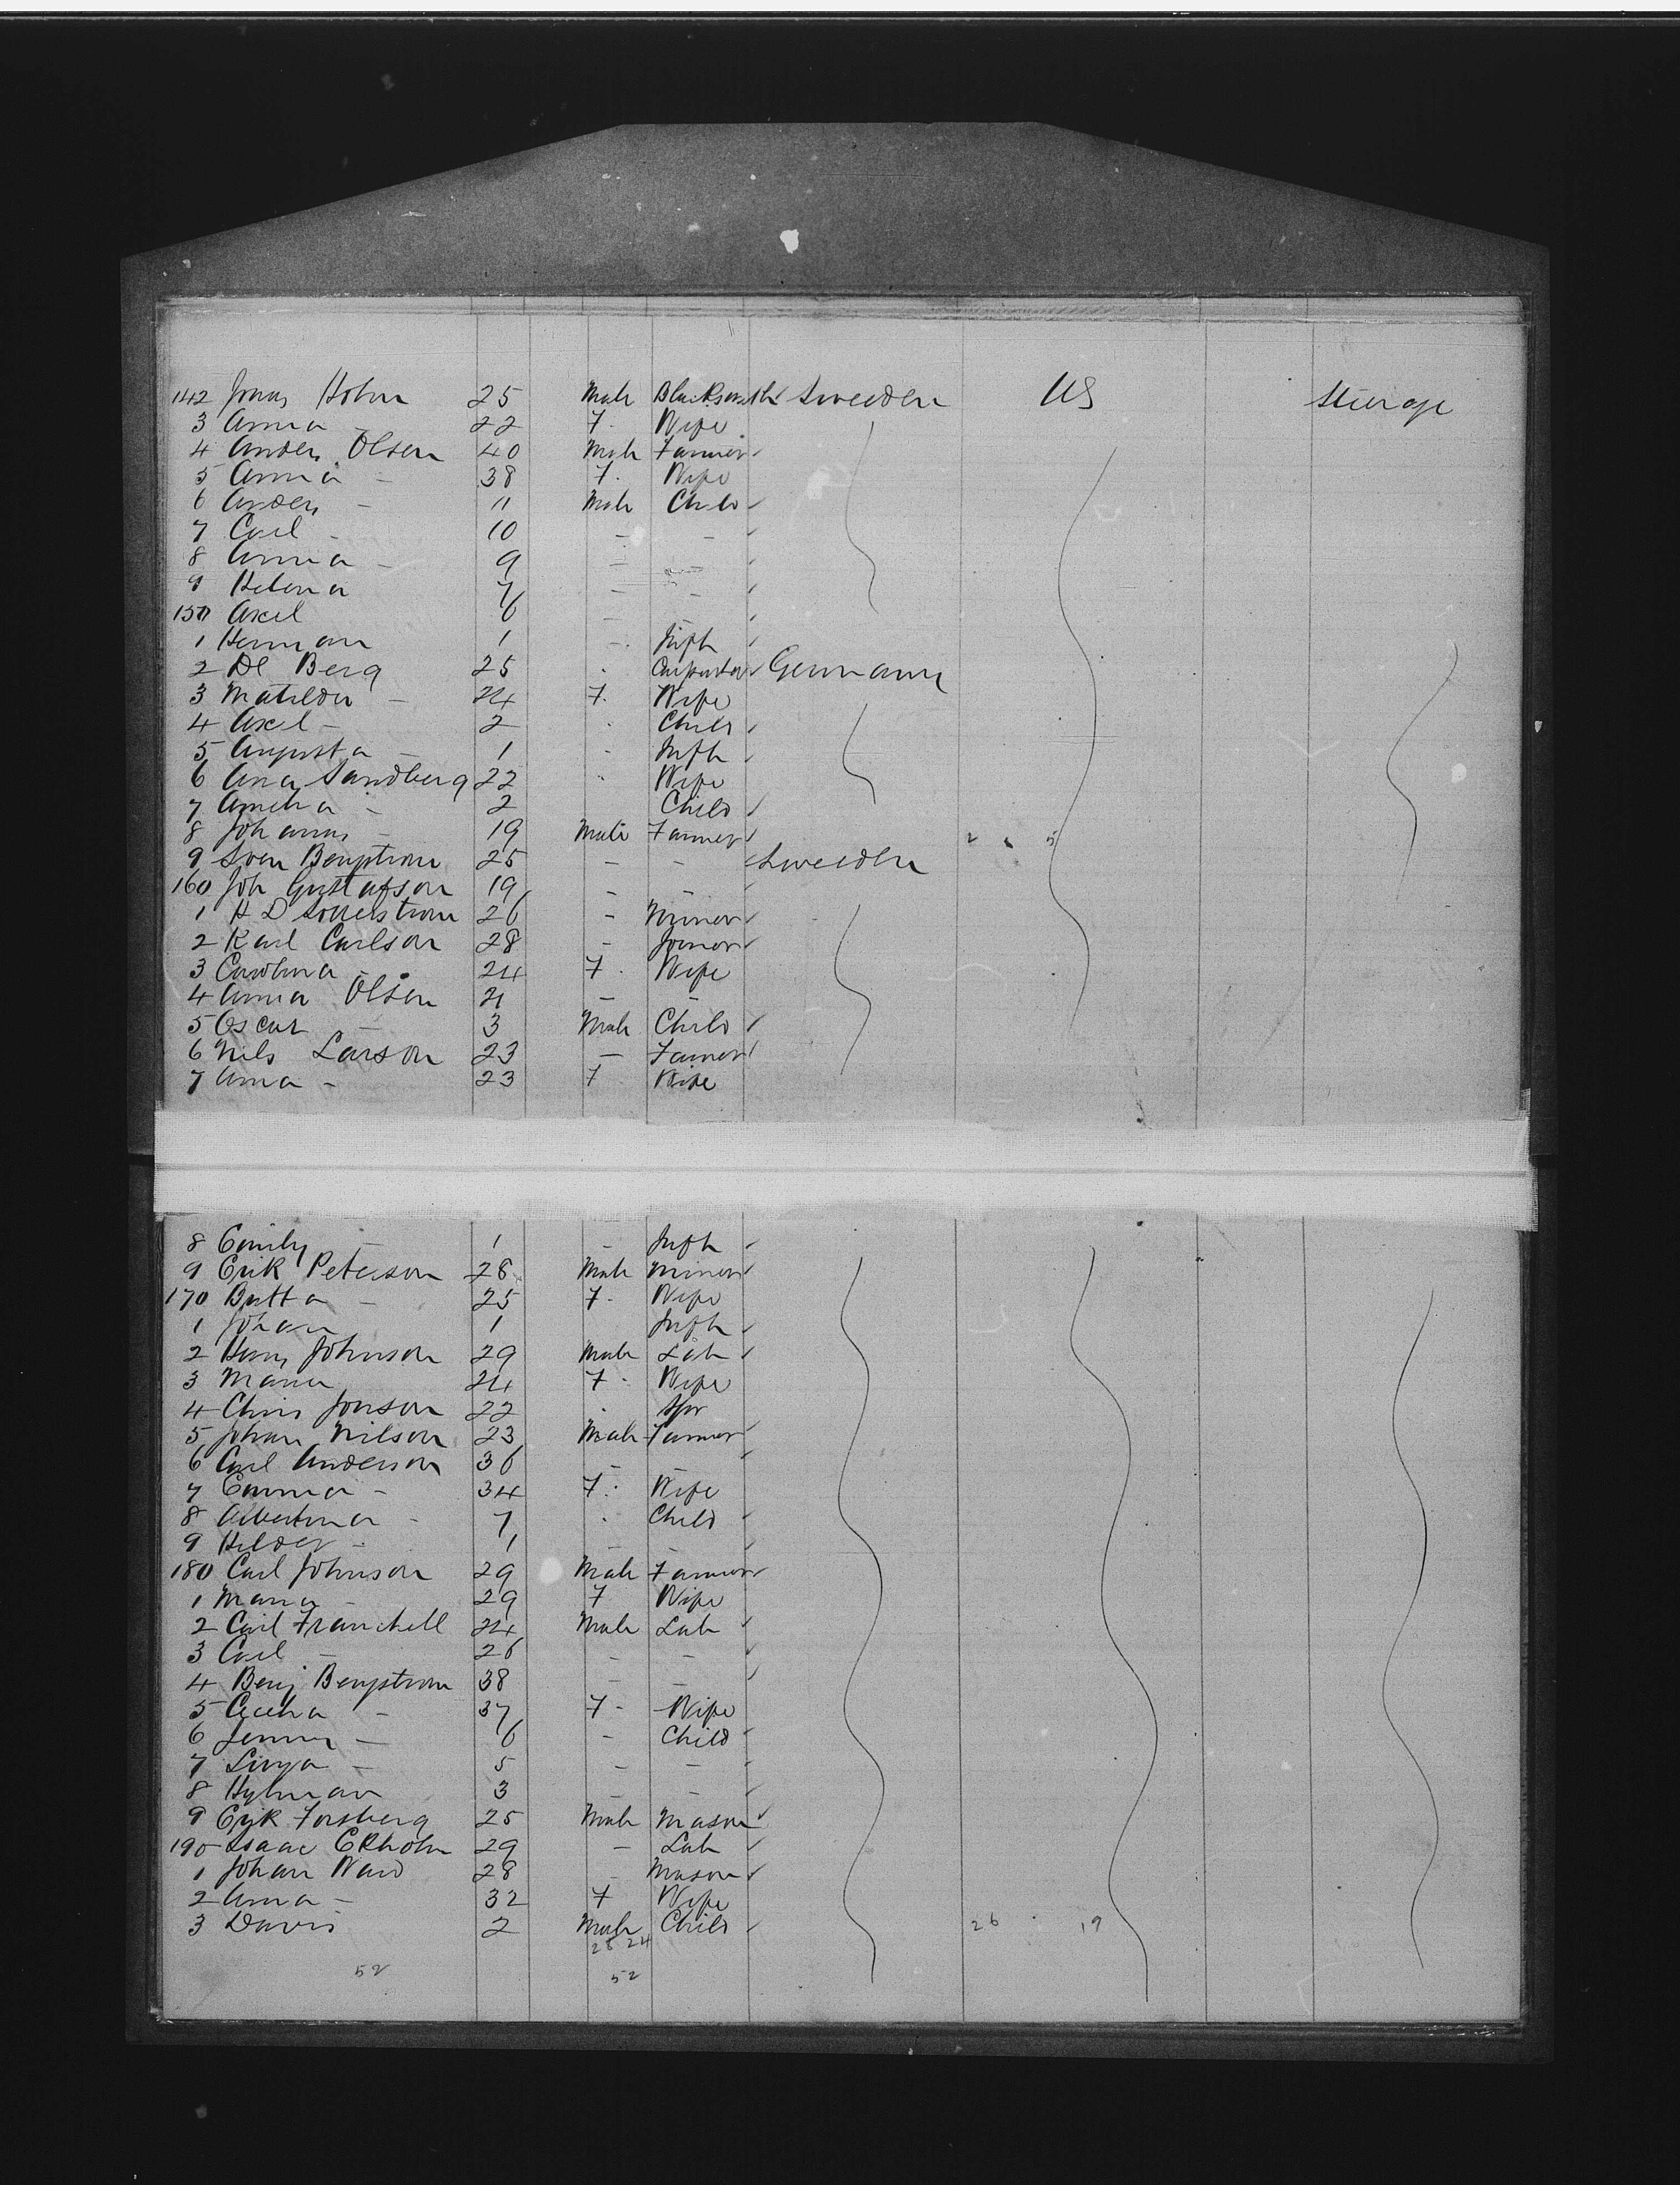 142 Jonas Holm 25 Male Blacksmith Sweden US Steerage
3 Anna - 22 F. Wife
4 Anders Olsen 40 Male Farmer
5 Anna - 38 F. Wife
6 Anders - 11 Male Child
7 Carl - 10 - -
8 Anna - 9 - -
9 Helena 7 - -
150 Axel 6 - -
1 Herman 1 - Inft
2 Berg 25 Carpenter Germany
3 Matilda - 24 F. Wife
4 Axel - 2 Child
5 Augusta - 1 - Inft
6 Ana Sandberg 22 Wife
7 Amelia - 2 Child
8 Johanns - 19 Male Farmer
9 Sven Bengstrom 25 - - Sweden
160 Joh Gustafson 19 - -
1 H D 26 - Miner
2 Karl Carlson 28 - Joiner
3 Carolina - 24 F. Wife
4 Anna Olsen 21 - -
5 Oscar - 3 Male Child
6 Nils Larson 23 - Farmer
7 Anna - 23 F Wife
8 Emily - 1 - Inft
9 Erik Peterson 28 Male Miner
170 Britta - 25 F. Wife
1 Johan 1 Inft
2 Hans Johnson 29 Male Lab
3 Maria 24 F. Wife
4 Chris Jonson 22 Spr
5 Johan Nilson 23 Male Farmer
6 Carl Anderson 36 - -
7 Emma - 34 F. Wife
8 Albertina - 7 Child
9 Hilder - 1 - -
180 Carl Johnson 29 Male Farmer
1 Maria - 29 F Wife
2 Carl Franchell 24 Male Lab
3 Carl - 26 - -
4 Benj Bengstrom 38 - -
5 Cecelia - 37 F - Wife
6 Jenny - 6 - Child
7 - 5 - -
8 Hylman 3 - -
9 Erik Forsberg 25 Male Mason
190 Isaac Ekholm 29 - Lab
1 Johan Ward 28 - Mason
2 Anna - 32 F Wife
3 David 2 Male Child 26 19
28 24
52 52